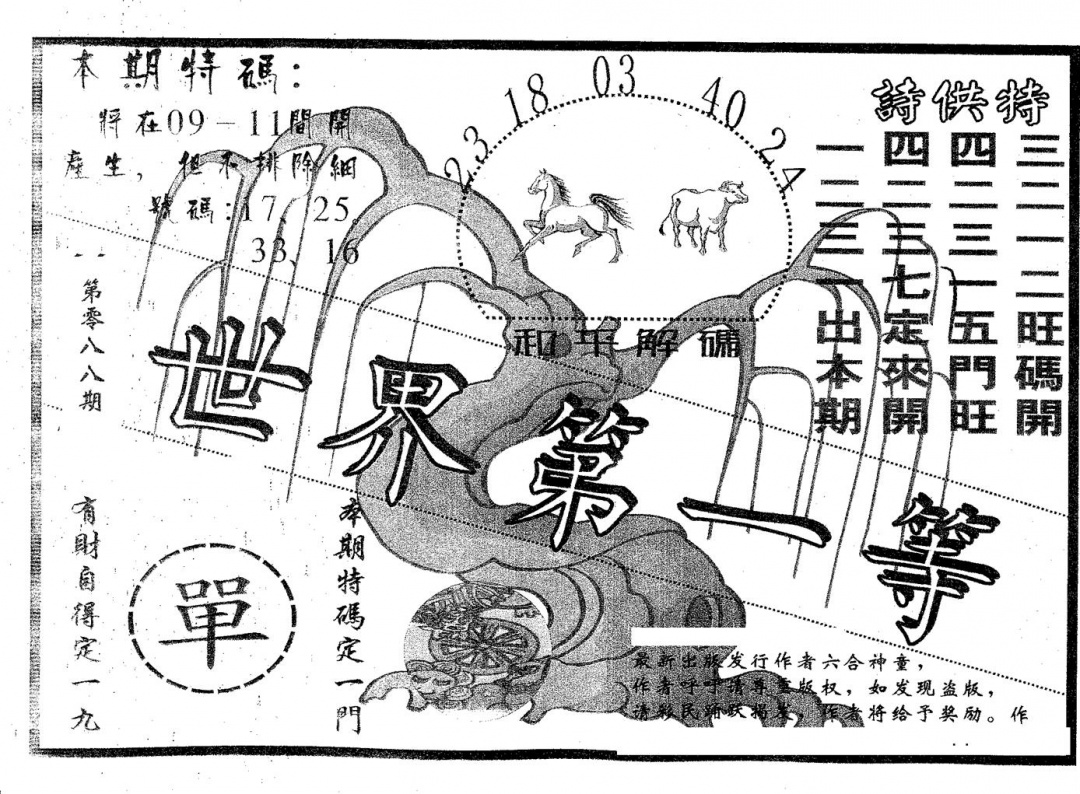 本期特碼：
將在09－11間開
產生，但不排除細
號碼：17、25、
33、16
第零八八期
23 18 03 40 24
和平解碼
特供詩
三二一二旺碼開
四二三一五門旺
四二三七定來開
一二三一出本期
世界第一等
有財自得定一九
單
本期特碼定一門
最新出版发行作者六合神童，
作者呼吁请尊重版权，如发现盗版，
请彩民踊跃揭发，作者将给予奖励。作